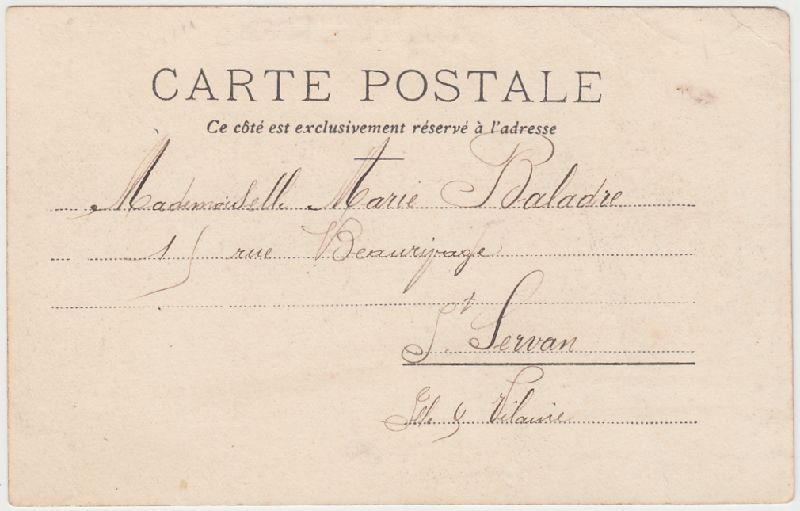 CARTE POSTALE
Ce côté est exclusivement réservé à l'adresse
Mademoiselle Marie Baladre
15 rue Beaurivage
St Servan
Ille & Vilaine